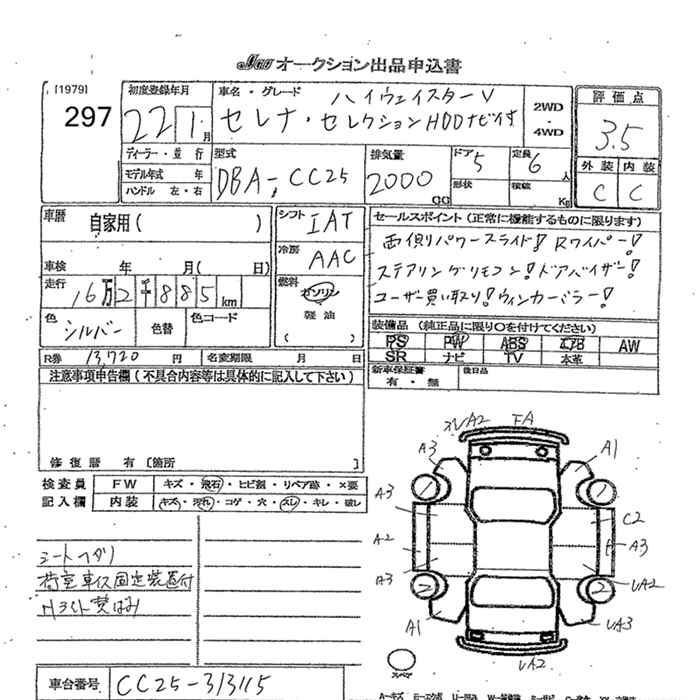 JU オークション出品申込書
[1979]
297
初度登録年月
22 1月
車名・グレード
ハイウェイスターV
セレナ・セレクションHDDナビ付
2WD
・
4WD
評価点
3.5
外装 内装
C C
ディーラー・並行
モデル年式 年
ハンドル 左・右
型式
DBA-CC25
排気量
2000 cc
ドア 5
形状
定員 6 人
積載 Kg
車歴
自家用( )
車検 年 月( 日)
走行
16万2千885km
色
シルバー
色替
色コード
シフト IAT
冷房 AAC
燃料
ガソリン
軽油
( )
セールスポイント(正常に機能するものに限ります)
両側パワースライド! Rワイパー!
ステアリングリモコン! ドアバイザー!
ユーザー買い取り! ウィンカーミラー!
装備品(純正品に限り〇を付けてください)
PS PW ABS エアB AW
SR ナビ TV 本革
R券 13,720 円 名変期限 月 日
新車保証書
有・無
後日品
注意事項申告欄(不具合内容等は具体的に記入して下さい)
修復歴 有 [箇所 ]
検査員
記入欄
FW キズ・飛石・ヒビ割・リペア跡・×要
内装 キズ・汚れ・コゲ・穴・スレ・キレ・破レ
シートヘタリ
荷室車イス固定装置付
A2 FA
A3 A1
A3 C2
A2 A3
A3 UA2
A1 UA3
UA2
スペア
車台番号 CC25-313115